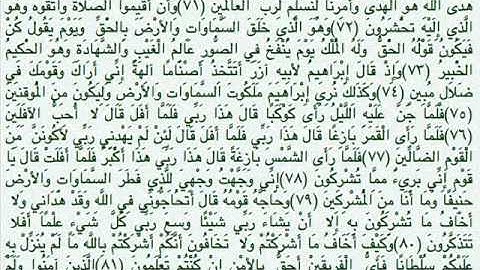 هدى الله هو الهدى وأمرنا لنسلم لرب العالمين (٧١) وأن أقيموا الصلاة واتقوه وهو
الذي إليه تحشرون (٧٢) وهو الذي خلق السماوات والأرض بالحق ويوم يقول كن
فيكون قوله الحق وله الملك يوم ينفخ في الصور عالم الغيب والشهادة وهو الحكيم
الخبير (٧٣) وإذ قال إبراهيم لأبيه آزر أتتخذ أصناما آلهة إني أراك وقومك في
ضلال مبين (٧٤) وكذلك نري إبراهيم ملكوت السماوات والأرض وليكون من الموقنين
(٧٥) فلما جن عليه الليل رأى كوكبا قال هذا ربي فلما أفل قال لا أحب الآفلين
(٧٦) فلما رأى القمر بازغا قال هذا ربي فلما أفل قال لئن لم يهدني ربي لأكونن من
القوم الضالين (٧٧) فلما رأى الشمس بازغة قال هذا ربي هذا أكبر فلما أفلت قال يا
قوم إني بريء مما تشركون (٧٨) إني وجهت وجهي للذي فطر السماوات والأرض
حنيفا وما أنا من المشركين (٧٩) وحاجه قومه قال أتحاجوني في الله وقد هداني ولا
أخاف ما تشركون به إلا أن يشاء ربي شيئا وسع ربي كل شيء علما أفلا
تتذكرون (٨٠) وكيف أخاف ما أشركتم ولا تخافون أنكم أشركتم بالله ما لم ينزل به
عليكم سلطانا فأي الفريقين أحق بالأمن إن كنتم تعلمون (٨١) الذين آمنوا ولم